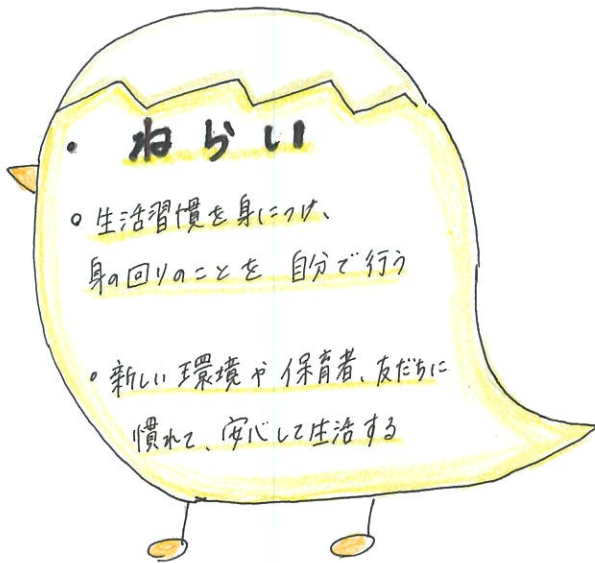 ・ ねらい
○ 生活習慣を身につけ、
身の回りのことを 自分で行う
○ 新しい環境や保育者、友だちに
慣れて、安心して生活する